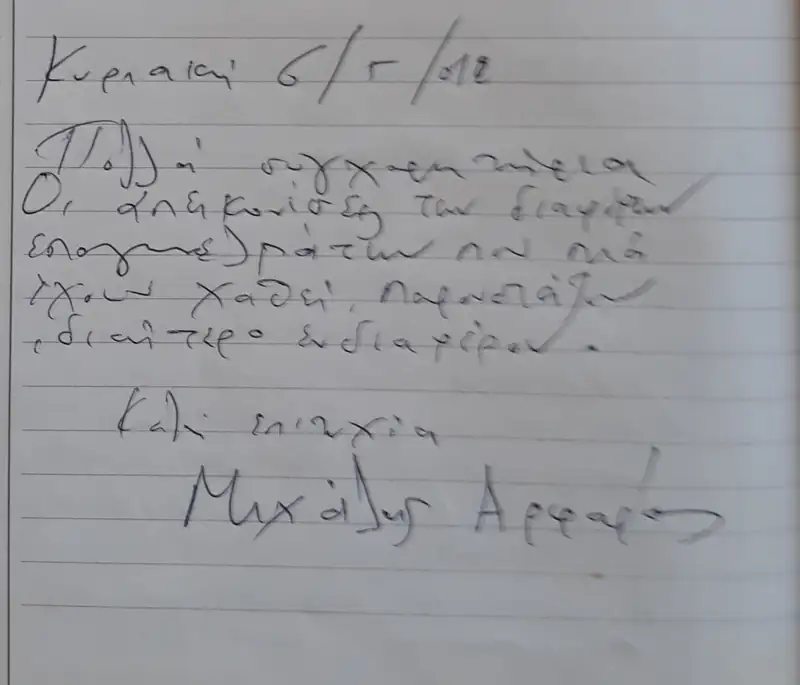 Κυριακή 6/5/012
Πολλά συγχαρητήρια
Οι απεικονίσεις των διαφόρων
επαγγελμάτων που πιά
έχουν χαθεί, παρουσιάζουν
ιδιαίτερο ενδιαφέρον.
Καλή επιτυχία
Μιχάλης